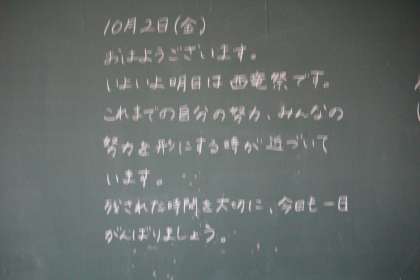 10月2日(金)
おはようございます。
いよいよ明日は西竜祭です。
これまでの自分の努力、みんなの
努力を形にする時が近づいて
います。
残された時間を大切に、今日も一日
がんばりましょう。